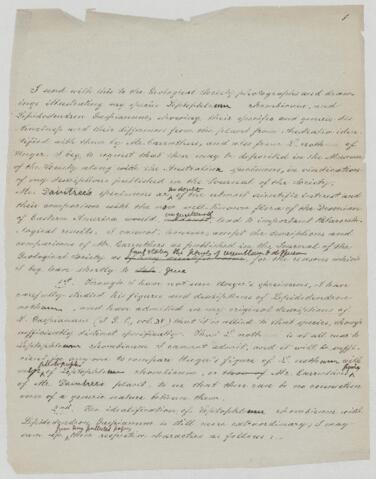 1
I send with this to the Geological Society photographs and draw-
ings illustrating my species Leptophleum rhombicum, and
Lepidodendron Gaspianum, showing their specific and generic dis-
tinctness and their difference from the plant from Australia iden-
tified with them by Mr. Carruthers, and also from L. nothum of
Unger. I beg to request that they may be deposited in the Museum
of the Society along with the Australian specimens, in vindication
of my descriptions published in the Journal of the Society.
no doubt
Mr. Daintree's specimens are of the utmost scientific interest and
their comparison with the now well-known flora of the Devonian
unquestionably
of Eastern America would lead to important Palaeonto-
logical results. I cannot, however, accept the descriptions and
comparisons of Mr. Carruthers as published in the Journal of the
fairly stating the points of resemblance & difference
Geological Society as for the reasons which
I beg leave shortly to give
1st. Though I have not seen Unger's specimens, I have
carefully studied his figures and descriptions of Lepidodendron
nothum, and have admitted in my original descriptions of
L. Gaspianum, that it is allied to that species, though
sufficiently distinct specifically. That L. nothum is allied to
Leptophleum rhombicum I cannot admit, and it will be suffi-
cient to any one to compare Unger's figure of L. nothum with
photographs
of Leptophleum rhombicum, or Mr. Carruthers'
figures
of Mr. Daintree's plant, to see that there can be no connection
even of a generic nature between them.
2nd. The identification of Leptophleum rhombicum with
Lepidodendron Gaspianum is still more extraordinary; I may
from my published papers
sum up their respective characters as follows:—